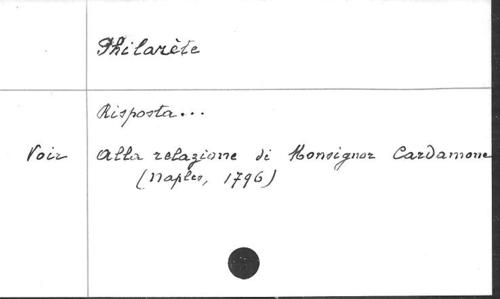 Philarète
Risposta...
Voir Alla relazione di Monsignor Cardamone
(Naples, 1796)